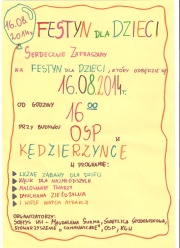 16.08.
2014r.
FESTYN DLA DZIECI
SERDECZNIE ZAPRASZAMY
NA FESTYN DLA DZIECI, KTÓRY ODBĘDZIE SIĘ
16.08.2014r.
OD GODZINY 16 00
PRZY BUDYNKU
OSP
W
KĘDZIERZYNCE
W PROGRAMIE:
GRY I ZABAWY DLA DZIECI
KĄCIK DLA NAJMŁODSZYCH
MALOWANIE TWARZY
DMUCHANA ZJEŻDŻALNIA
I WIELE INNYCH ATRAKCJI
ORGANIZATORZY:
SOŁTYS WSI - MAGDALENA ŚWIETLICA ŚRODOWISKOWA,
STOWARZYSZENIE OSP, KGW